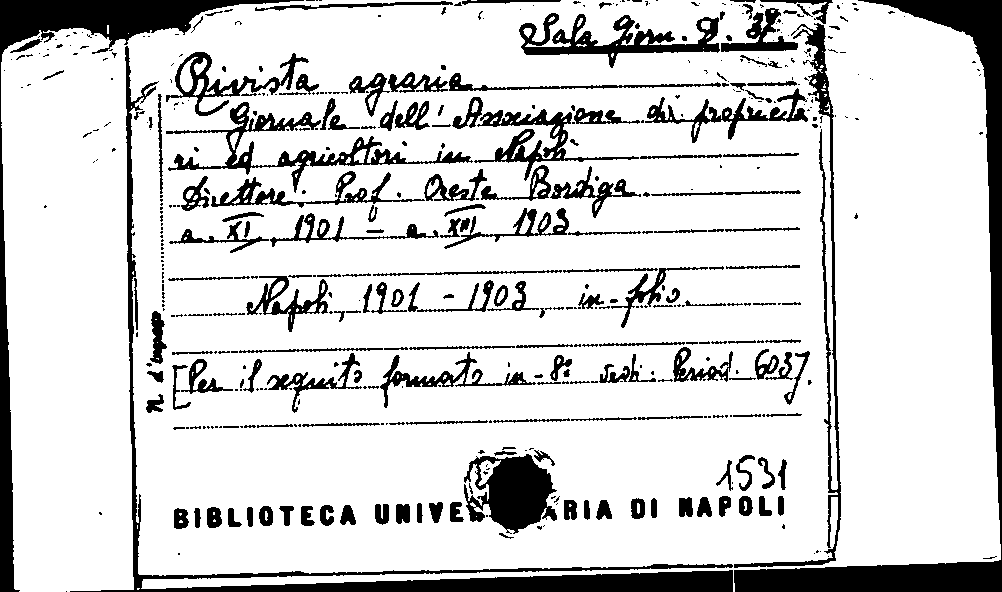 Sala Giorn. D. 37.
Rivista agraria.
Giornale dell' Associazione di proprieta.
ri ed agricoltori in Napoli.
Direttore: Prof. Oreste Bordiga.
a. XI, 1901 – a. XIII, 1903.
Napoli, 1901 – 1903, in-folio.
[Per il seguito formato in-8º vedi: Period. 603].
N. d'ingresso
1531
BIBLIOTECA UNIVE ARIA DI NAPOLI